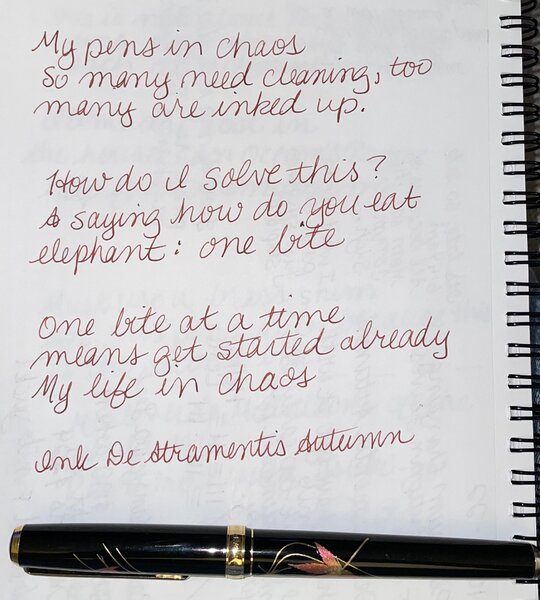 My pens in chaos
So many need cleaning, too
many are inked up.
How do I solve this?
A saying how do you eat
elephant: one bite
One bite at a time
means get started already
My life in chaos
Ink De Atramentis Autumn